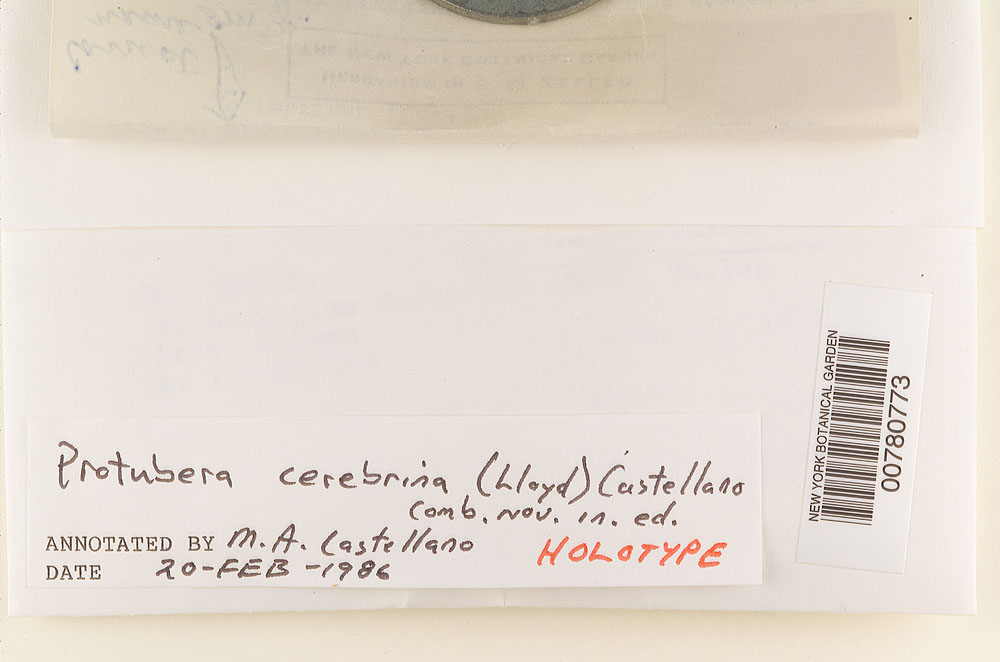 THE NEW YORK BOTANICAL GARDEN
HERBARIUM OF S. M. ZELLER
Protubera cerebrina (Lloyd) Castellano
comb. nov. in. ed.
ANNOTATED BY M. A. Castellano
HOLOTYPE
DATE 20-FEB-1986
NEW YORK BOTANICAL GARDEN
00780773